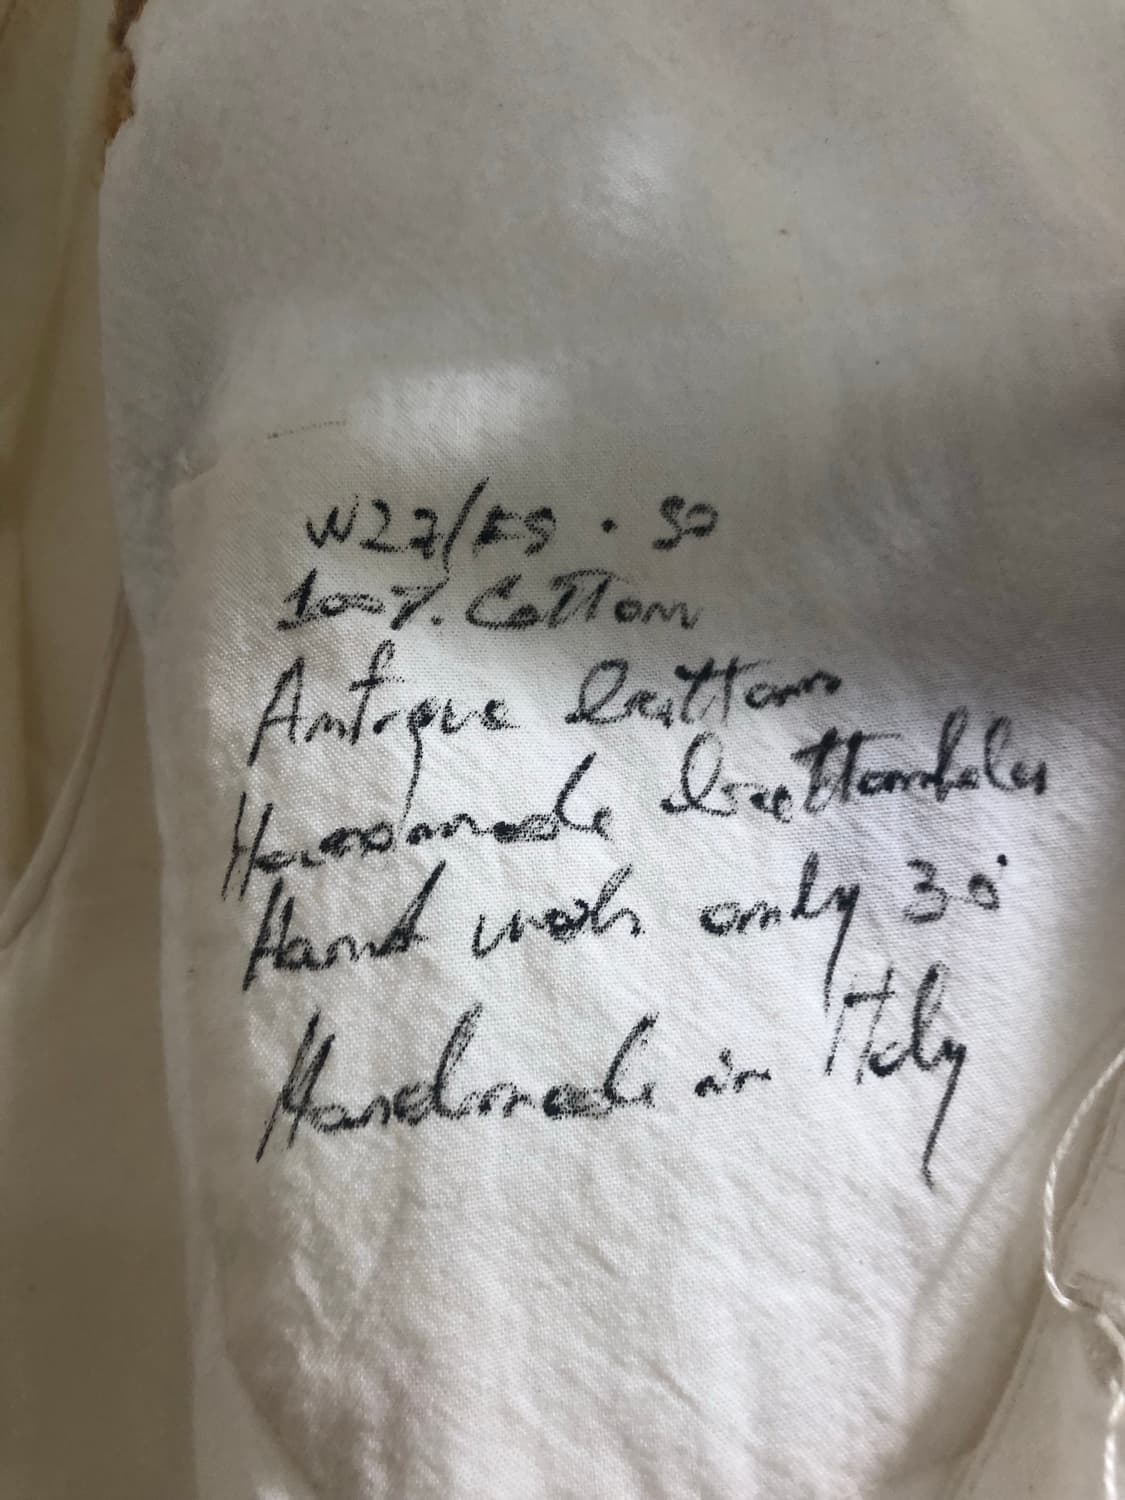 W27/FS · 50
100% Cotton
Antique button
Handmade buttonholes
Hand wash only 30°
Handmade in Italy